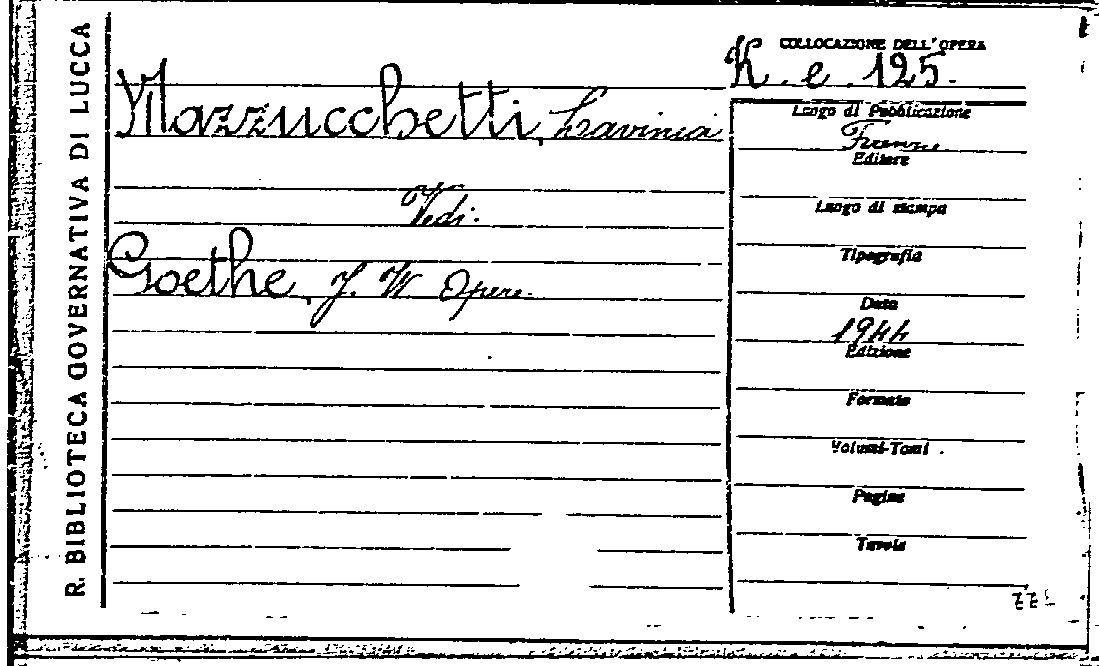 R. BIBLIOTECA GOVERNATIVA DI LUCCA
COLLOCAZIONE DELL'OPERA
K. e. 125.
Mazzucchetti, Lavinia
Vedi:
Goethe, J. W Opere.
Luogo di Pubblicazione
Editore
Luogo di stampa
Tipografia
Data
1944
Edizione
Formato
Volumi-Tomi
Pagine
Tavole